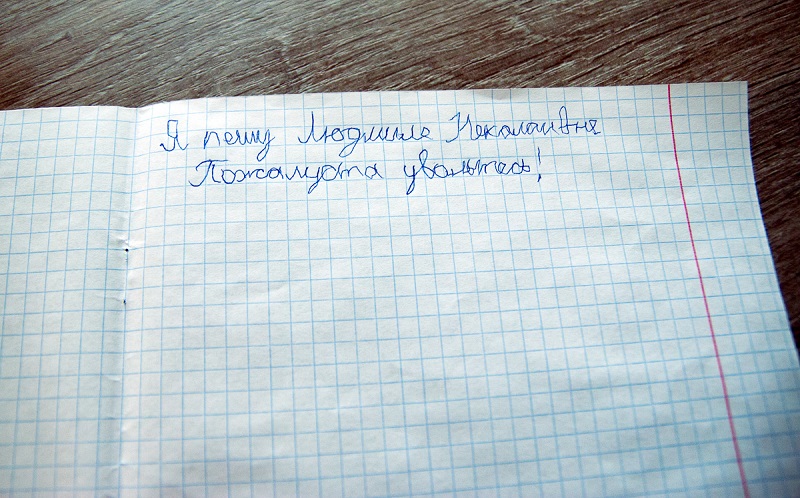 Я пешу Людмиле Неколаивня
Пожалуста увольтесь!